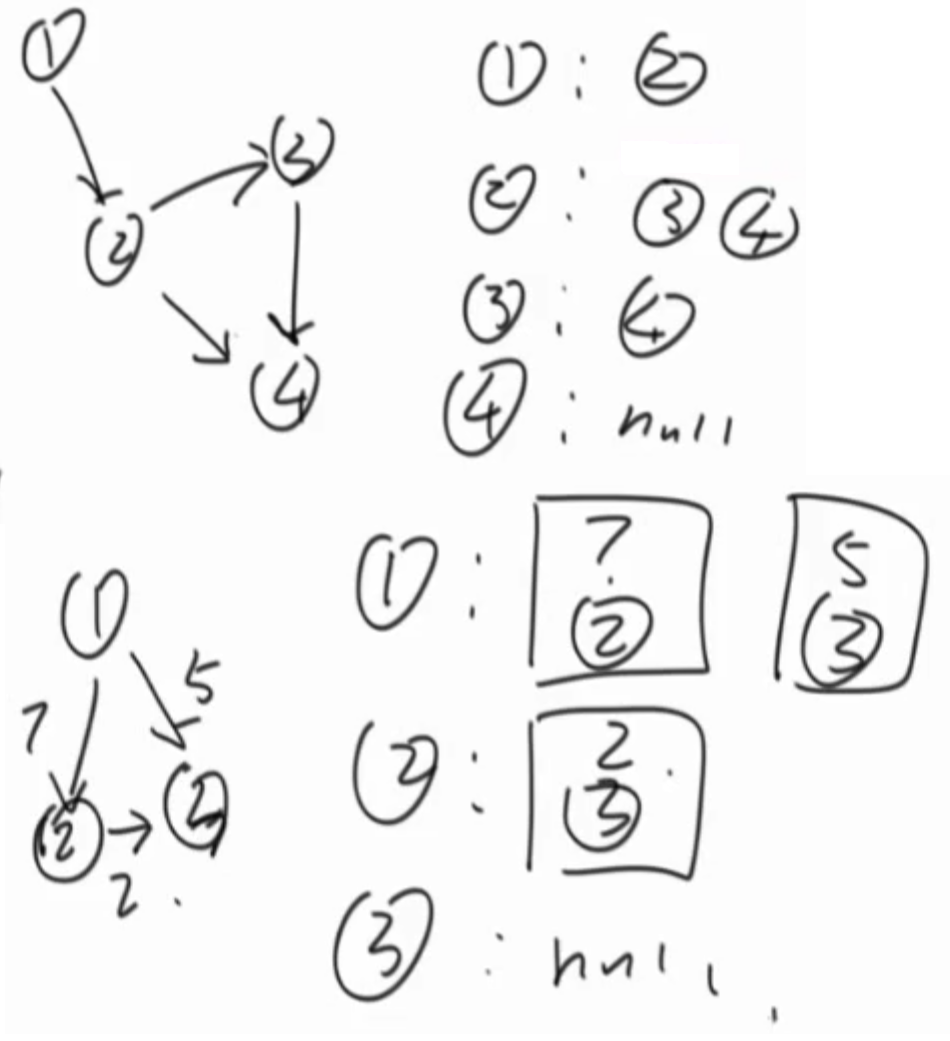 ①
② ③
④
① : ②
② : ③ ④
③ : ④
④ : null
①
7 5
② ③
2
① : 7 ② 5 ③
② : 2 ③
③ : null